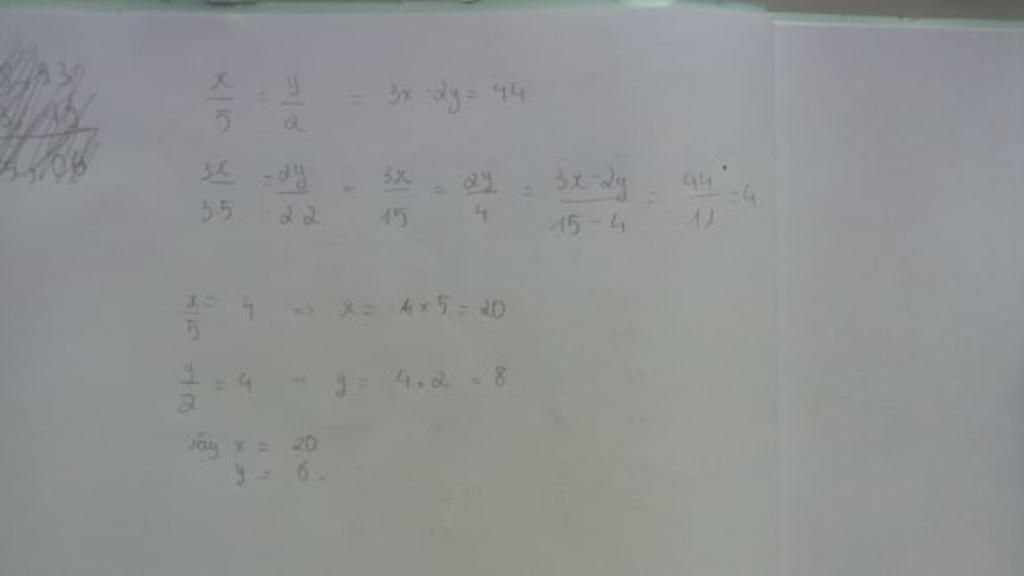 x/5 = y/2 = 3x - 2y = 44
3x/3.5 = 2y/2.2 = 3x/15 = 2y/4 = 3x-2y/15-4 = 44/11 = 4
x/5 = 4 => x = 4 × 5 = 20
y/2 = 4 => y = 4.2 = 8
Vậy x = 20
y = 8.